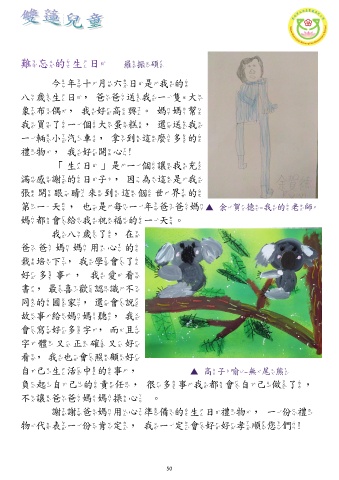 雙蓮兒童
難忘的生日 羅振碩
今年十一月六日是我的
八歲生日，爸爸送我一隻大
象布偶，我好高興。媽媽幫
我買了一個大蛋糕，還送我
一輛小汽車，拿到這麼多的
禮物，我好開心！
「生日」是一個讓我充
滿感謝的日子，因為這是我
張開眼睛來到這個世界的
第一天，也是每一年爸爸媽
媽都會給我祝福的一天。
▲ 余賀德-我的老師
我八歲了，在
爸爸媽媽用心的
栽培下，我學會了
好多事，我愛看
書，最喜歡認識不
同的國家，還會說
故事給媽媽聽，我
會寫好多字，而且
字體又正確又好
看，我也會照顧好
自己生活中的事，
▲ 高子喻-無尾熊
負起自己的責任，很多事我都會自己做了，
不讓爸爸媽媽操心。
謝謝爸媽用心準備的生日禮物，一份禮
物代表一份肯定，我一定會好好孝順您們！
50